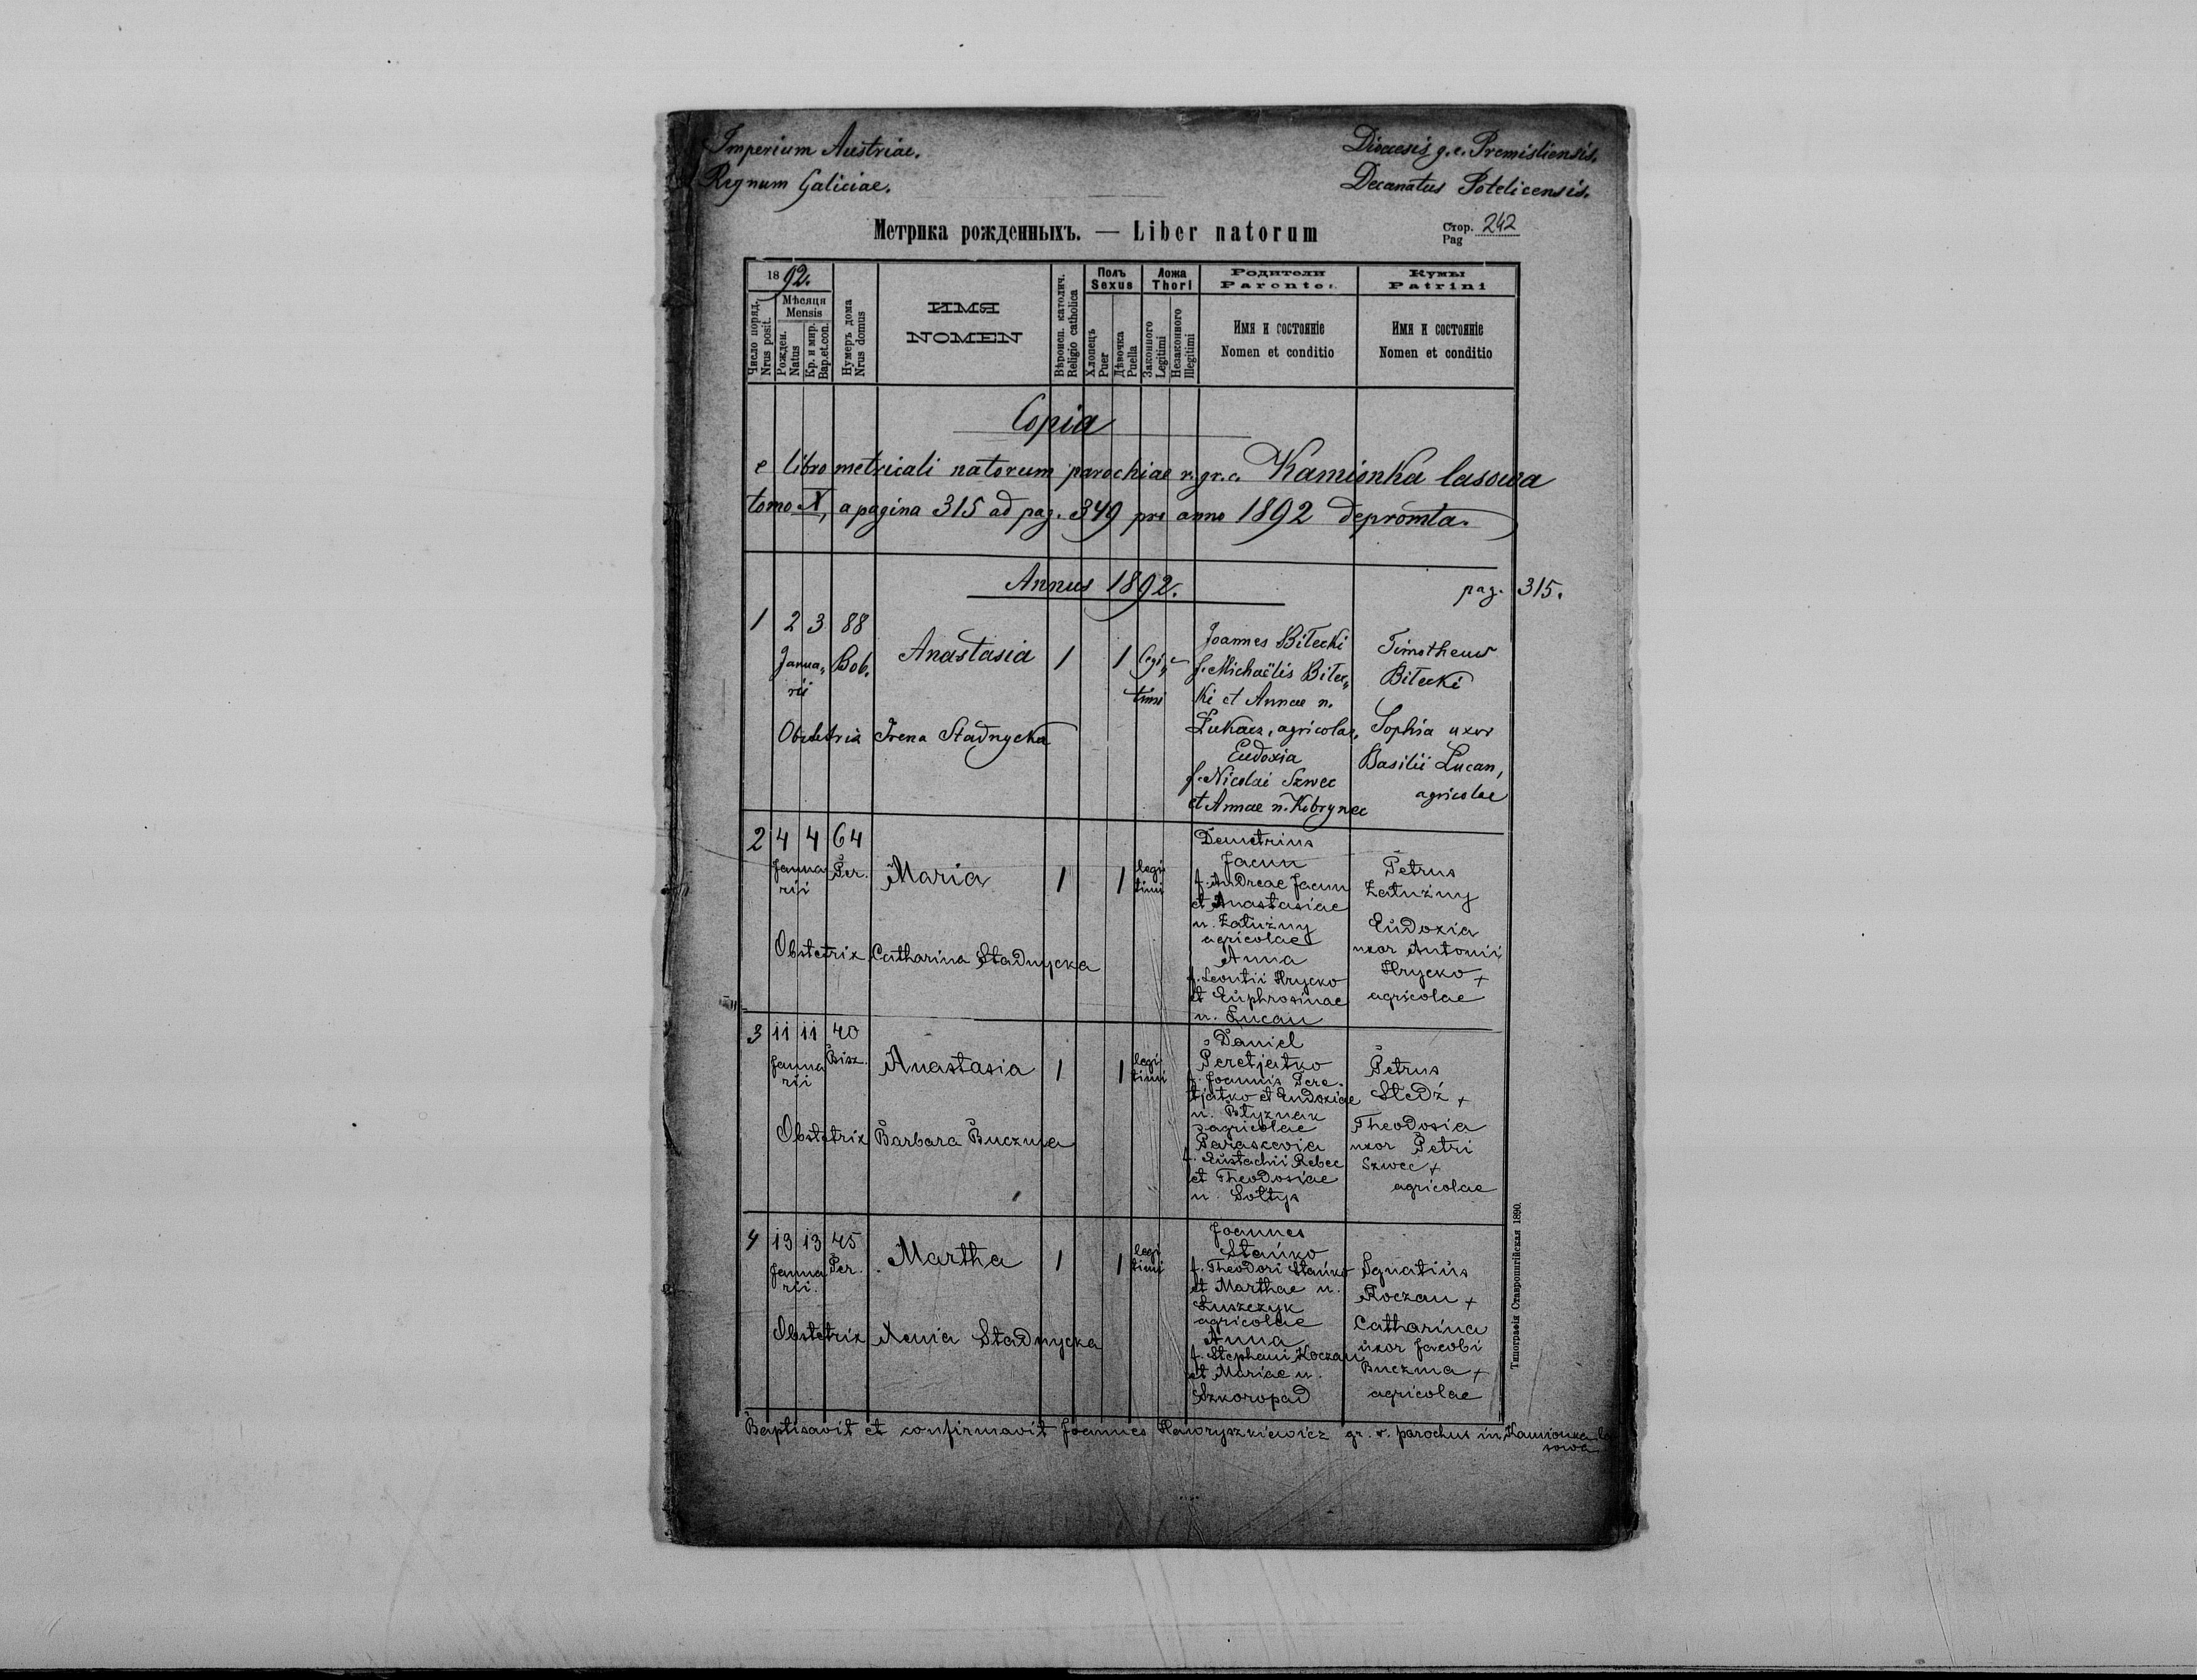 Imperium Austriae.
Regnum Galiciae.
Dioecesis g.c. Premisliensis.
Decanatus Potelicensis.
Метрика рожденныхъ. — Liber natorum
Стор. 242
Pag
1892.
Число поряд.
Nrus posit.
Мѣсяця
Mensis
Рожден.
Natus
Кр. и мир.
Bap.et.con.
Нумеръ дома
Nrus domus
ИМЯ
NOMEN
Вѣроисп. католич.
Religio catholica
Полъ
Sexus
Хлопецъ
Puer
Дѣвочка
Puella
Ложа
Thori
Законного
Legitimi
Незаконного
Illegitimi
Родители
Parentes
Имя и состоянiе
Nomen et conditio
Кумы
Patrini
Имя и состоянiе
Nomen et conditio
Copia
e libro metricali natorum parochiae r. gr. c. Kamionka lasowa
tomo X, a pagina 315 ad pag. 349 pro anno 1892 depromta.
Annus 1892.
pag. 315.
1 2 3 88
Janua„
rii
Bob.
Anastasia 1 1
legi„
timi
Joannes Biłecki
f. Michaëlis Biłec„
ki et Annae n.
Łukacz, agricolae,
Eudoxia
f. Nicolai Szwec
et Annae n. Kobrynec
Timotheus
Biłecki
Sophia uxor
Basilii Lucan,
agricolae
Obstetrix Irena Stadnycka
2 4 4 64
Janua
rii
Per.
Maria 1 1
legi
timi
Demetrius
Jacun
f. Andreae Jacun
et Anastasiae
n. Załużny
agricolae
Anna
f. Leontii Hrycko
et Euphrosinae
n. Lucan
Petrus
Załużny
Eudoxia
uxor Antonii
Hrycko +
agricolae
Obstetrix Catharina Stadnycka
3 11 11 40
Janua
rii
Bisz.
Anastasia 1 1
legi
timi
Daniel
Peretjatko
f. Joannis Pere-
tjatko et Eudoxiae
n. Błyznak
agricolae
Paraskevia
f. Eustachii Rebec
et Theodosiae
n. Sołtys
Petrus
Sledź +
Theodosia
uxor Petri
Szwec +
agricolae
Obstetrix Barbara Buczma
4 13 13 45
Janua
rii.
Per.
Martha 1 1
legi
timi
Joannes
Stańko
f. Theodori Stańko
et Marthae n.
Łuszczyk
agricolae
Anna
f. Stephani Koczan
et Mariae n.
Szkoropad
Ignatius
Koczan +
Catharina
uxor Jacobi
Buczma +
agricolae
Obstetrix Xenia Stadnycka
Baptisavit et confirmavit Joannes Hawryszkiewicz gr. r. parochus in Kamionka la
sowa
Типографія Ставропигійская 1890.